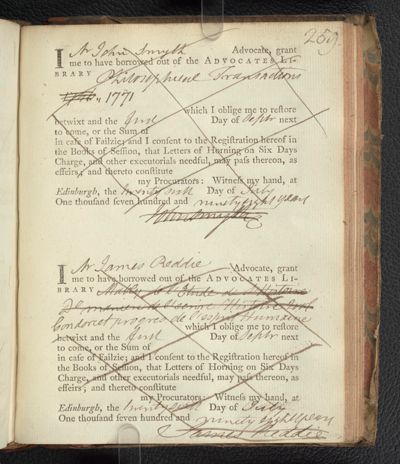 259.
I Mr John Smyth Advocate, grant
me to have borrowed out of the ADVOCATES LI-
BRARY Philosophical Transactions
1771
which I oblige me to reſtore
betwixt and the first Day of Septr next
to come, or the Sum of
in caſe of Failzie; and I conſent to the Regiſtration hereof in
the Books of Seſſion, that Letters of Horning on Six Days
Charge, and other executorials needful, may paſs thereon, as
effeirs; and thereto conſtitute
my Procurators: Witneſs my hand, at
Edinburgh, the twenty sixth Day of July
One thouſand ſeven hundred and ninety eight years
John Smyth
I Mr James Reddie Advocate, grant
me to have borrowed out of the ADVOCATES LI-
BRARY Mably de l'Etude de l'Histoire
De maniere de l'ecrire
Condorcet progres de l'esprit Humaine
which I oblige me to reſtore
betwixt and the first Day of Septr next
to come, or the Sum of
in caſe of Failzie; and I conſent to the Regiſtration hereof in
the Books of Seſſion, that Letters of Horning on Six Days
Charge, and other executorials needful, may paſs thereon, as
effeirs; and thereto conſtitute
my Procurators: Witneſs my hand, at
Edinburgh, the twenty sixth Day of July
One thouſand ſeven hundred and ninety eight years
James Reddie